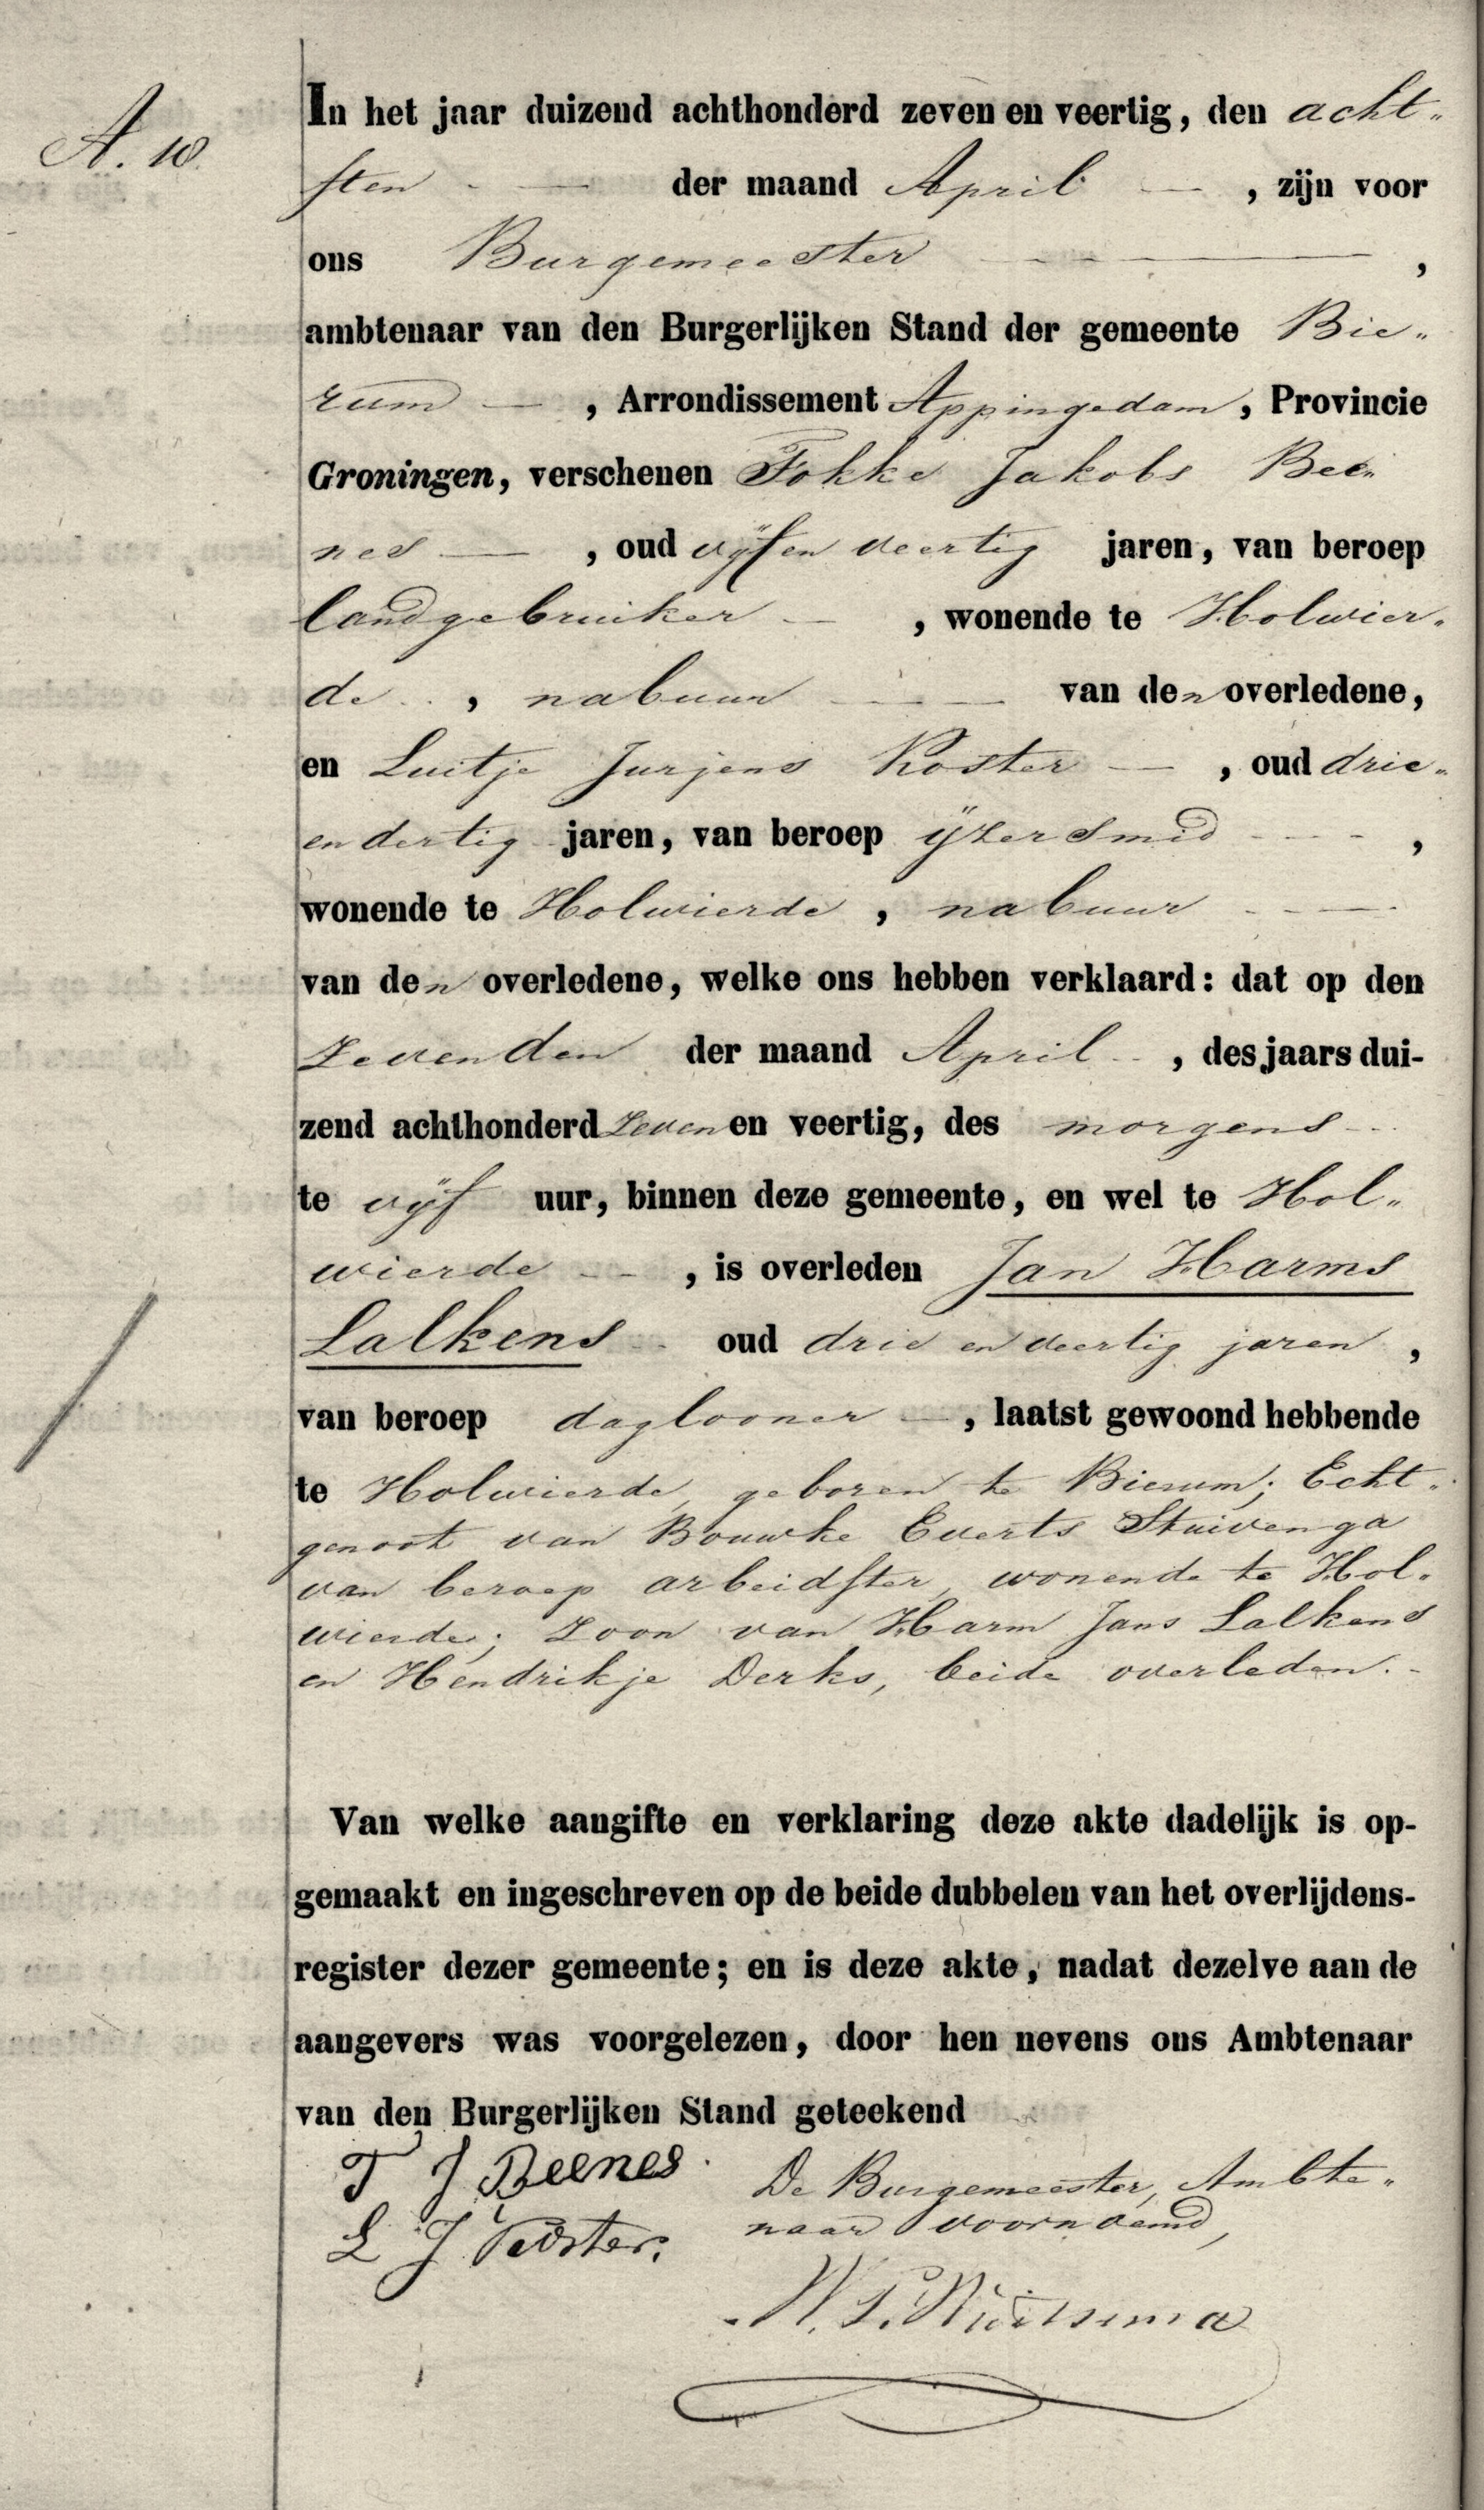 A. 10.
In het jaar duizend achthonderd zeven en veertig, den acht-
sten der maand April, zijn voor
ons Burgemeester,
ambtenaar van den Burgerlijken Stand der gemeente Bie-
rum, Arrondissement Appingedam, Provincie
Groningen, verschenen Fokke Jakobs Bee-
nes, oud vijf en veertig jaren, van beroep
landgebruiker, wonende te Holwier-
de, nabuur van den overledene,
en Luitje Jurjens Koster, oud drie-
en dertig jaren, van beroep ijzersmid,
wonende te Holwierde, nabuur
van den overledene, welke ons hebben verklaard: dat op den
zevenden der maand April, des jaars dui-
zend achthonderd zeven en veertig, des morgens
te vijf uur, binnen deze gemeente, en wel te Hol-
wierde, is overleden Jan Harms
Lalkens oud drie en veertig jaren,
van beroep daglooner, laatst gewoond hebbende
te Holwierde, geboren te Bierum; Echt-
genoot van Bouwke Everts Stuivenga
van beroep arbeidster, wonende te Hol-
wierde; Zoon van Harm Jans Lalkens
en Hendrikje Derks, beide overleden.
Van welke aangifte en verklaring deze akte dadelijk is op-
gemaakt en ingeschreven op de beide dubbelen van het overlijdens-
register dezer gemeente; en is deze akte, nadat dezelve aan de
aangevers was voorgelezen, door hen nevens ons Ambtenaar
van den Burgerlijken Stand geteekend
F J Beenes.
L J Koster.
De Burgemeester, Ambte-
naar voornoemd,